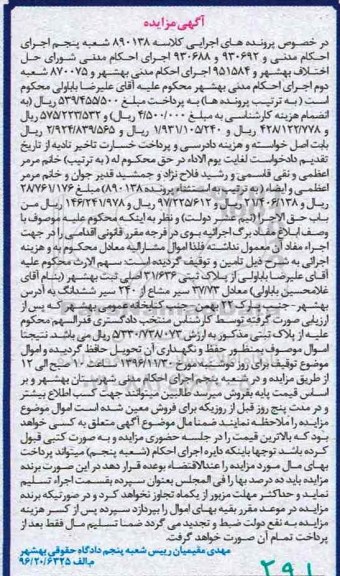 آگهی مزایده
در خصوص پرونده های اجرایی کلاسه ۸۹۰۱۳۸ شعبه پنجم اجرای
احکام مدنی و ۹۳۰۶۹۲ و ۹۳۰۶۸۸ اجرای احکام مدنی شورای حل
اختلاف بهشهر و ۹۵۱۵۸۴ اجرای احکام مدنی بهشهر و ۸۷۰۰۷۵ شعبه
دوم اجرای احکام مدنی بهشهر محکوم علیه آقای علیرضا باباولی محکوم
است ( به ترتیب پرونده ها) به پرداخت مبلغ ۵۳۹/۴۵۵/۵۰۰ ریال (به
انضمام هزینه کارشناسی به مبلغ ۴/۵۰۰/۰۰۰ ریال) و ۵۷۵/۲۲۳/۵۳۲
و ۴۲۸/۱۲۲/۷۷۸ ریال و ۱/۹۳۱/۱۰۵/۲۴۰ ریال و ۲/۹۲۴/۸۳۹/۵۶۵ ریال
بابت اصل خواسته و هزینه دادرسی و پرداخت خسارت تاخیر تادیه از تاریخ
تقدیم دادخواست لغایت یوم الاداء در حق محکوم له ( به ترتیب) خانم مرمر
اعظمی و نفی قاسمی و رشید فلاح نژاد و جمشید قدیر جوان و خانم مرمر
اعظمی و ایضاء (به ترتیب به استثناء پرونده ۸۹۰۱۳۸) مبلغ ۲۸۷۶۱/۱۷۶
ریال و ۲۱/۴۰۶/۱۳۸ ریال و ۹۷/۲۲۵/۶۱۲ ریال و ۱۴۶/۲۴۱/۹۷۸ ریال من
باب حق الاجرا (نیم عشر دولت) و نظر به اینکه محکوم علیه موصوف با
وصف ابلاغ مفاد برگ اجرائیه بوی در فرجه مقرر قانونی اقدامی را در جهت
اجراء مفاد آن معمول نداشته فلذا اموال مشارالیه معادل محکوم به و هزینه
اجرائی به شرح ذیل تامین و توقیف گردیده است: سهم الارث محکوم علیه
آقای علیرضا باباولی از پلاک ثبتی ۳۱/۶۳۶ اصلی ثبت بهشهر (بنام آقای
غلامحسین باباولی) معادل ۳۷/۷۳ سیر مشاع از ۲۴۰ سیر ششدانگ به آدرس
بهشهر - جنب پارک ۲۲ بهمن- جنب کتابخانه عمومی بهشهر که پس از
ارزیابی صورت گرفته توسط کارشناس منتخب دادگستری قدرالسهم محکوم
علیه از پلاک ثبتی مذکور به ارزش ۵/۳۳۰/۷۳۸/۰۷۳ ریال می باشد. نتیجتا
اموال موصوف بمنظور حفظ و نگهداری آن تحویل حافظ گردیده و اموال
موضوع توقیف برای روز دوشنبه مورخ ۱۳۹۶/۱۱/۳۰ ساعت ۱۰ صبح الی ۱۲
از طریق مزایده و در شعبه پنجم اجرای احکام مدنی شهرستان بهشهر و بر
اساس قیمت پایه بفروش میرسد. طالبین میتوانند جهت کسب اطلاع بیشتر
و در مدت پنج روز قبل از روزیکه برای فروش معین شده است اموال موضوع
مزایده را ملاحظه نمایند ضمنا مال موضوع آگهی متعلق به کسی خواهد
بود که بالاترین قیمت را در جلسه حضوری مزایده و به صورت کتبی قبول
کرده باشد. توجها باینکه دایره اجرای احکام (شعبه پنجم) میتواند پرداخت
بهای مال مورد مزایده را عندالاقتضاء بوعده قرار دهد در این صورت برنده
مزایده باید ده درصد بها را فی المجلس بعنوان سپرده بقسمت اجراء تسلیم
نماید و حداکثر مهلت مزبور از یکماه تجاوز نخواهد کرد و در صورتیکه برنده
مزایده در موعد مقرر بقیه بهای اموال را نپردازد سپرده پس از کسر هزینه
مزایده به نفع دولت ضبط و تجدید می گردد. ضمنا تسلیم مال فقط بعد از
پرداخت تمام آن صورت خواهد گرفت.
مهدی مقیمیان رییس شعبه پنجم دادگاه حقوقی بهشهر
م الف ۹۶/۲۰/۶۳۳۵
۲۹۱